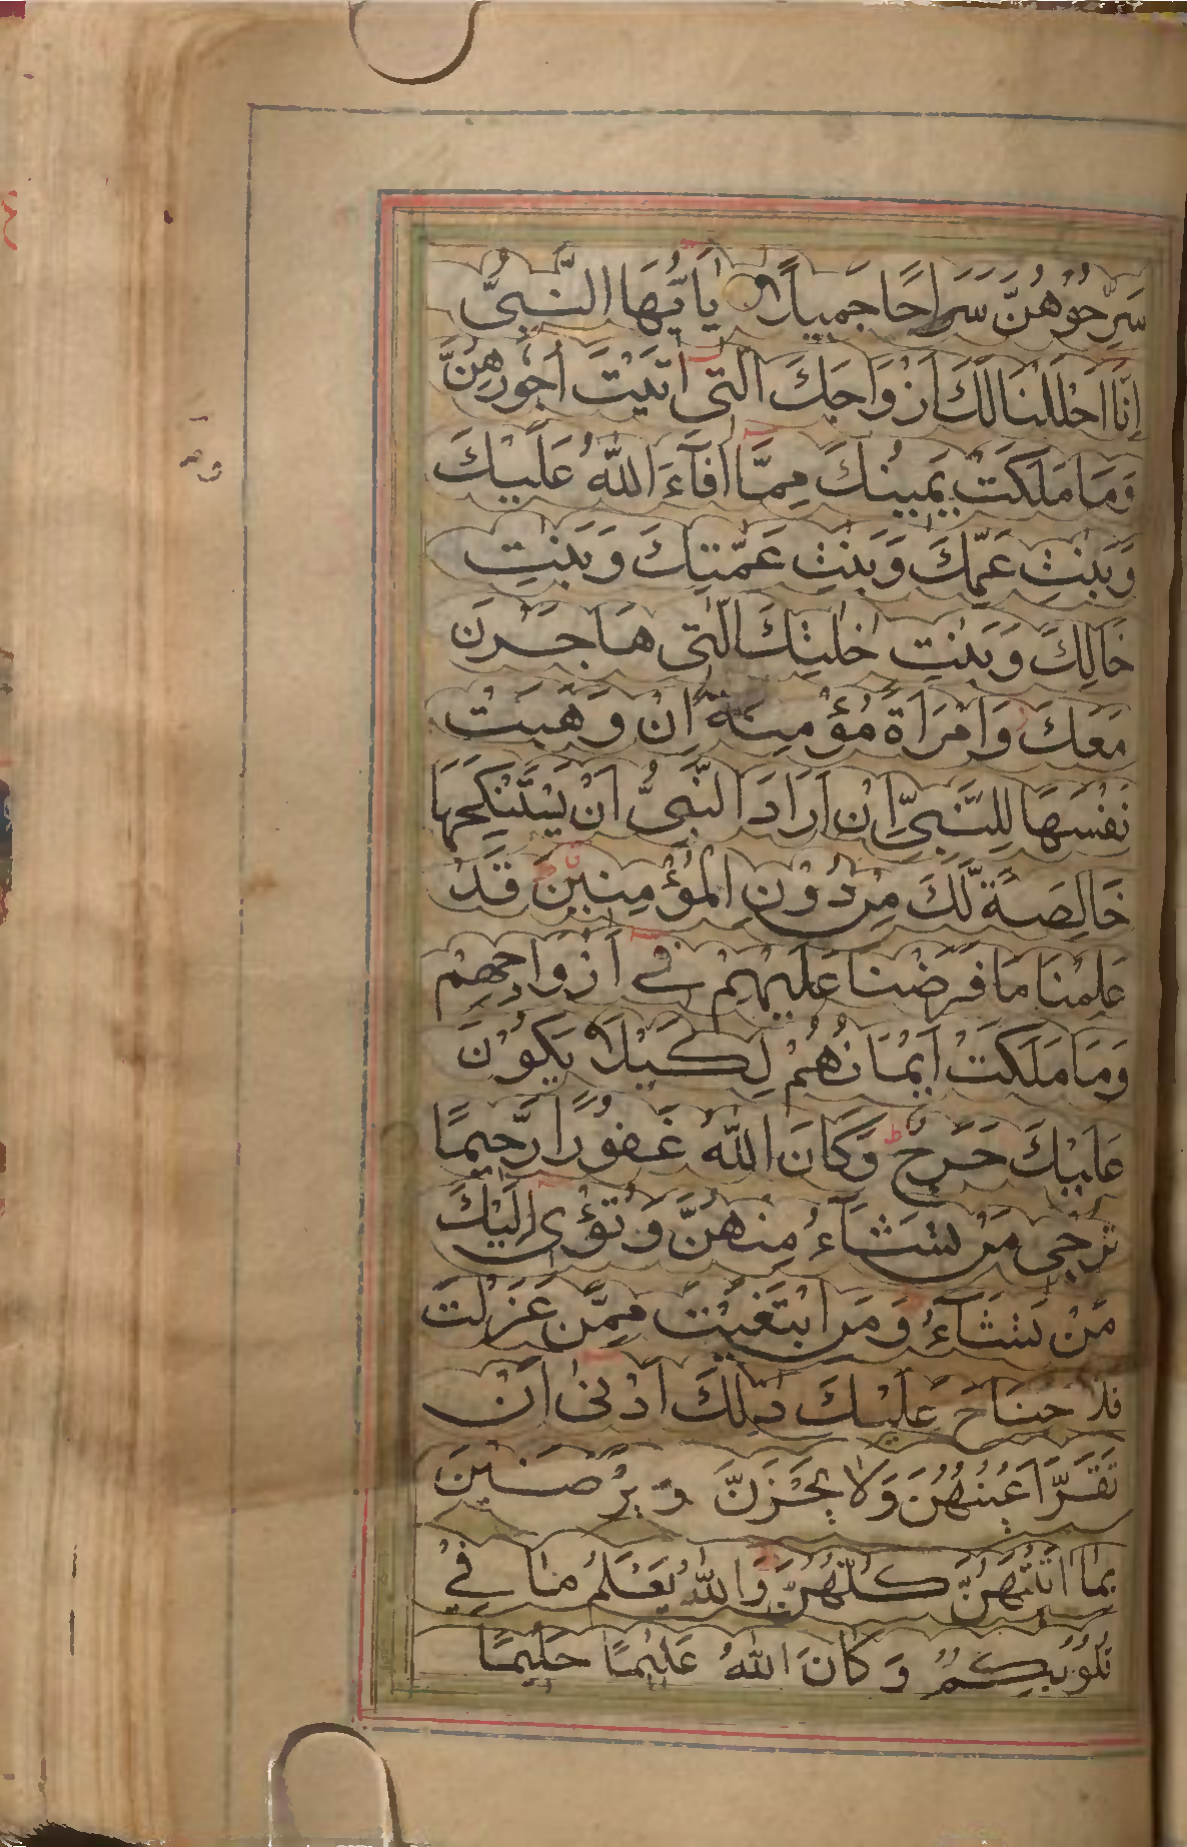 سَرِّحُوْهُنَّ سَرَاحًا جَمِيلًا يٰاَيُّهَا النَّبِىُّ
اِنَّا اَحْلَلْنَا لَكَ اَزْوَاجَكَ الّٰتِى اٰتَيْتَ اُجُوْرَهُنَّ
وَمَا مَلَكَتْ يَمِينُكَ مِمَّا اَفَآءَ اللّٰهُ عَلَيْكَ
وَبَنٰتِ عَمِّكَ وَبَنٰتِ عَمّٰتِكَ وَبَنٰتِ
خَالِكَ وَبَنٰتِ خٰلٰتِكَ الّٰتِى هَاجَرْنَ
مَعَكَ وَامْرَاَةً مُؤْمِنَةً اِنْ وَهَبَتْ
نَفْسَهَا لِلنَّبِىِّ اِنْ اَرَادَ النَّبِىُّ اَنْ يَسْتَنْكِحَهَا
خَالِصَةً لَّكَ مِنْ دُوْنِ الْمُؤْمِنِينَ قَدْ
عَلِمْنَا مَا فَرَضْنَا عَلَيْهِمْ فِے اَزْوَاجِهِمْ
وَمَا مَلَكَتْ اَيْمَانُهُمْ لِكَيْلَا يَكُوْنَ
عَلَيْكَ حَرَجٌ ط وَكَانَ اللّٰهُ غَفُوْرًا رَّحِيمًا
تُرْجِى مَنْ تَشَآءُ مِنْهُنَّ وَتُؤْىِ اِلَيْكَ
مَنْ تَشَآءُ وَمَنِ ابْتَغَيْتَ مِمَّنْ عَزَلْتَ
فَلَا جُنَاحَ عَلَيْكَ ذٰلِكَ اَدْنٰى اَنْ
تَقَرَّ اَعْيُنُهُنَّ وَلَا يَحْزَنَّ وَيَرْضَيْنَ
بِمَا اٰتَيْتَهُنَّ كُلُّهُنَّ وَاللّٰهُ يَعْلَمُ مَا فِيْ
قُلُوْبِكُمْ وَكَانَ اللّٰهُ عَلِيْمًا حَلِيْمًا